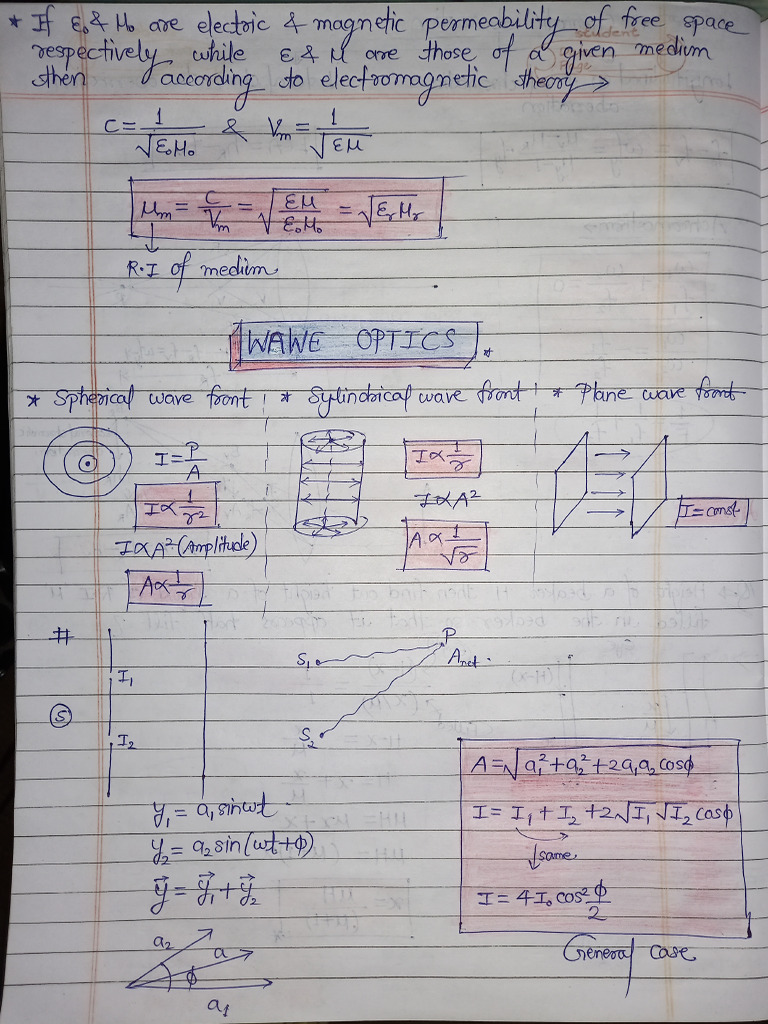 * If ε₀ & μ₀ are electric & magnetic permeability of free space
respectively while ε & μ are those of a given medium
then according to electromagnetic theory →
C = 1/√(ε₀μ₀) & Vm = 1/√(εμ)
μm = C/Vm = √(εμ/ε₀μ₀) = √(εrμr)
R.I of medium
WAWE OPTICS *
* Spherical wave front * Sylindrical wave front * Plane wave front
I = P/A
I ∝ 1/r²
I ∝ A² (Amplitude)
A ∝ 1/r
I ∝ 1/r
I ∝ A²
A ∝ 1/√r
I = const
#
S
I₁
I₂
S₁
S₂
P
Anet.
y₁ = a₁ sinωt
y₂ = a₂ sin(ωt+ϕ)
y⃗ = y⃗₁ + y⃗₂
a₂
a
ϕ
a₁
A = √(a₁² + a₂² + 2a₁a₂ cosϕ)
I = I₁ + I₂ + 2√I₁ √I₂ cosϕ
↓ same
I = 4I₀ cos² ϕ/2
General case